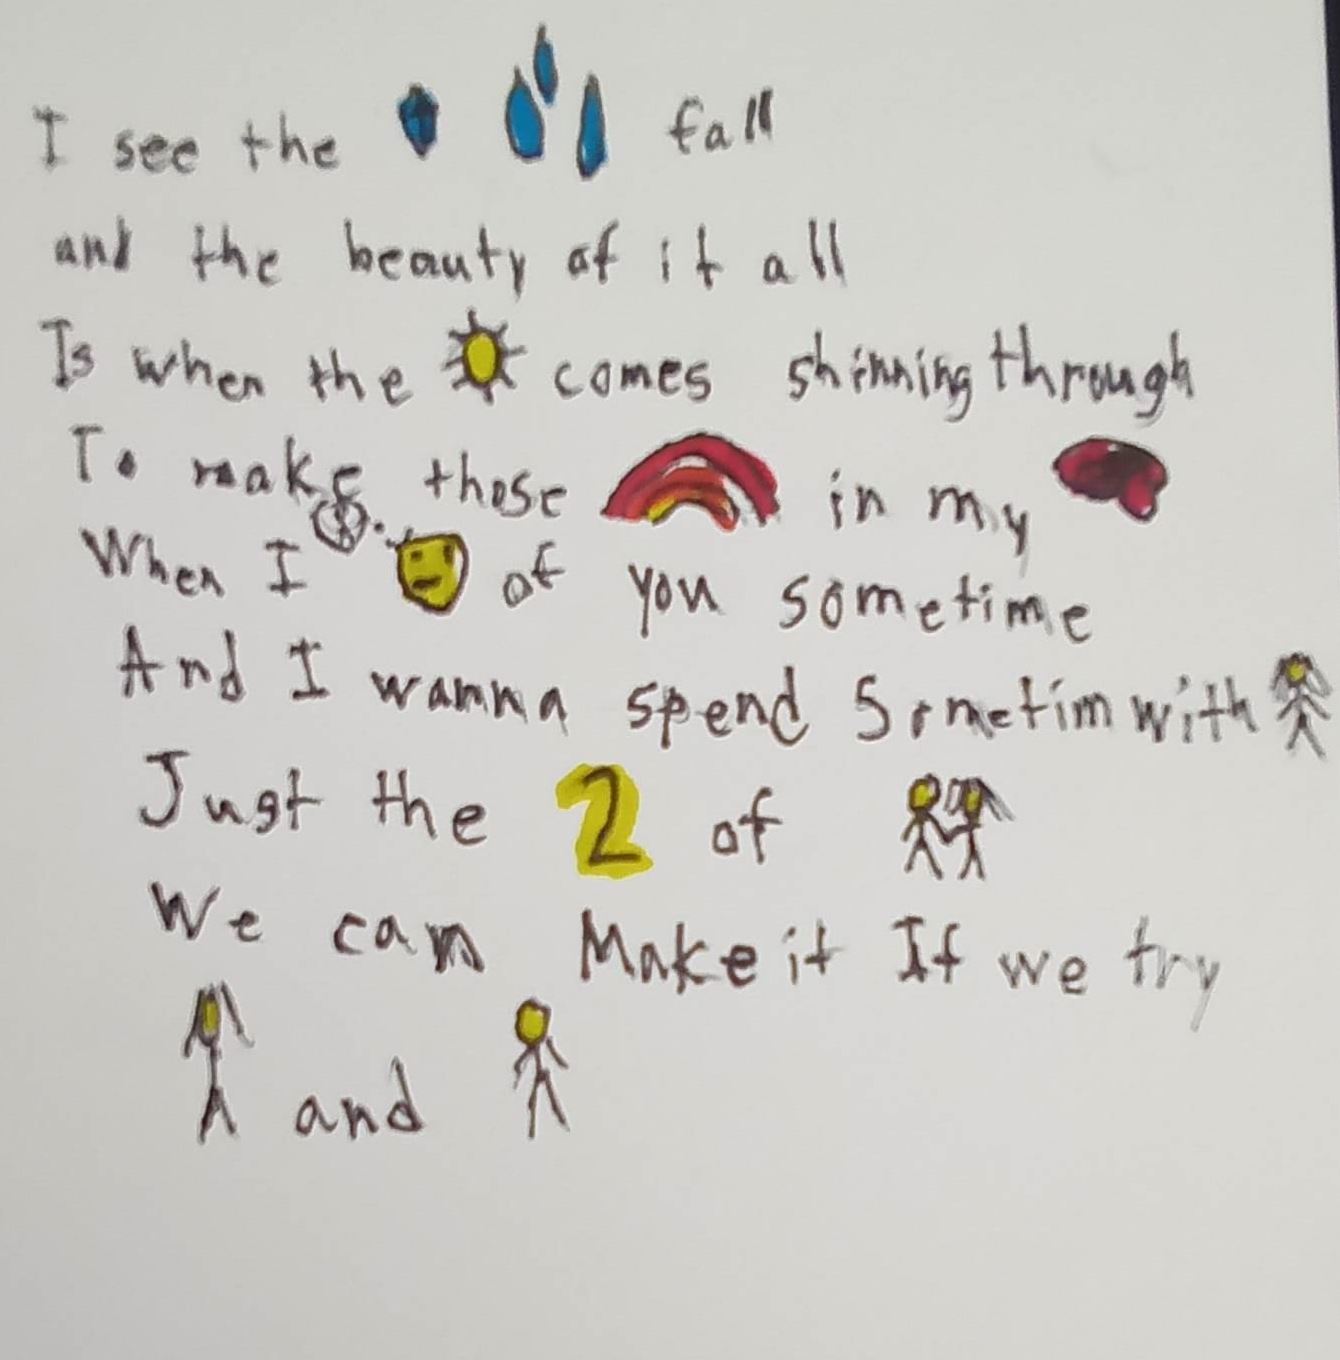 I see the fall
and the beauty of it all
Is when the comes shinning through
To make those in my
When I of you sometime
And I wanna spend Sometim with
Just the 2 of
We can Make it If we try
and